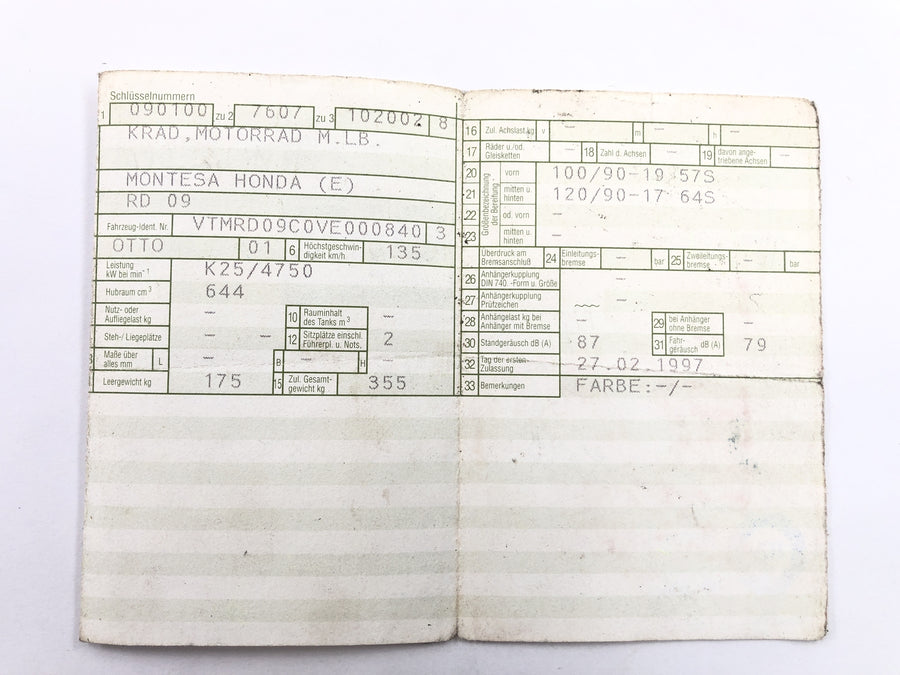 Schlüsselnummern
1 090100 zu 2 7607 zu 3 102002. 8
KRAD,MOTORRAD M.LB.
MONTESA HONDA (E)
RD 09
Fahrzeug-Ident. Nr. VTMRD09C0VE000840 3
OTTO 01 6 Höchstgeschwin-digkeit km/h 135
Leistung kW bei min-1 K25/4750
Hubraum cm³ 644
Nutz- oder Aufliegelast kg — 10 Rauminhalt des Tanks m³ —
Steh-/ Liegeplätze — — 12 Sitzplätze einschl. Führerpl. u. Nots. 2
Maße über alles mm L — B — H —
Leergewicht kg 175 15 Zul. Gesamt-gewicht kg 355
16 Zul. Achslast kg v — m — h —
17 Räder u./od. Gleisketten — 18 Zahl d. Achsen — 19 davon ange-triebene Achsen —
Größenbezeichnung der Bereifung
20 vorn 100/90-19 57S
21 mitten u. hinten 120/90-17 64S
22 od. vorn —
23 mitten u. hinten —
Überdruck am Bremsanschluß 24 Einleitungs-bremse — bar 25 Zweileitungs-bremse — bar
26 Anhängerkupplung DIN 740.-Form u. Größe —
27 Anhängerkupplung Prüfzeichen
28 Anhängelast kg bei Anhänger mit Bremse — 29 bei Anhänger ohne Bremse —
30 Standgeräusch dB (A) 87 31 Fahr-geräusch dB (A) 79
32 Tag der ersten Zulassung 27.02.1997
33 Bemerkungen FARBE:-/-